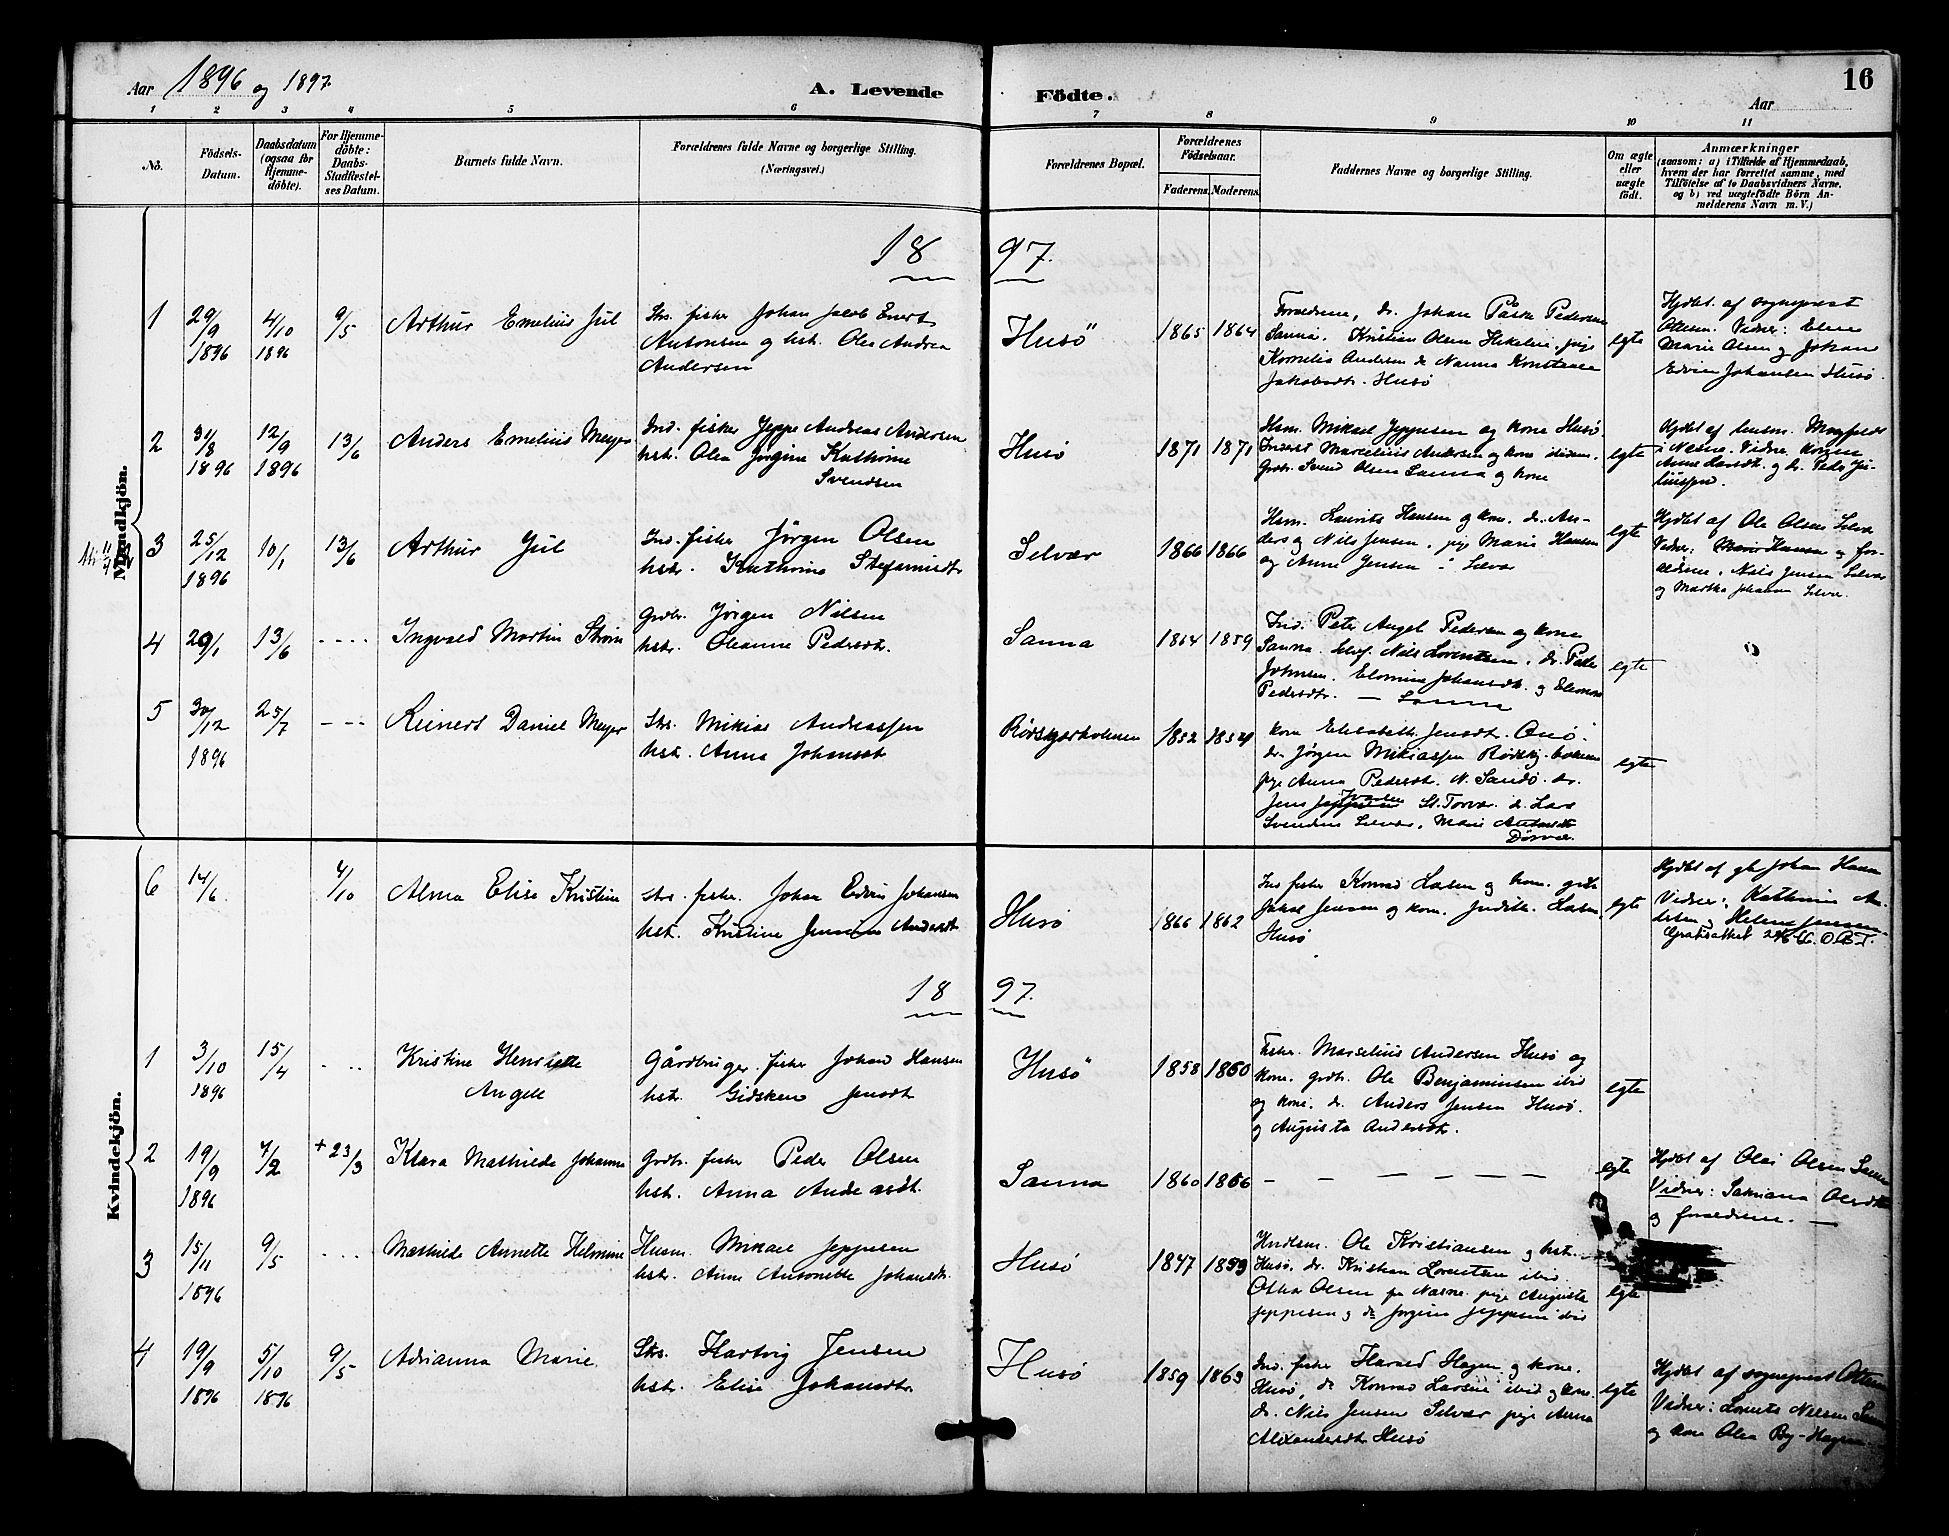 Aar 1896 og 1897.
A. Levende Födte.
Aar
16
1 2 3 4 5 6 7 8 9 10 11
No.
Födsels-
Datum.
Daabsdatum
(ogsaa for
Hjemme-
döbte).
For Hjemme-
döbte:
Daabs-
Stadfæstel-
ses Datum.
Barnets fulde Navn.
Forældrenes fulde Navne og borgerlige Stilling.
(Næringsvei.)
Forældrenes Bopæl.
Forældrenes
Födselsaar.
Faderens. Moderens.
Faddernes Navne og borgerlige Stilling.
Om ægte
eller
uægte
födt.
Anmærkninger
(saasom: a) i Tilfælde af Hjemmedaab,
hvem der har forrettet samme, med
Tilföielse af to Daabsvidners Navne,
og b) ved uægtefödte Börn An-
melderens Navn m. V.)
Mandkjön.
18 97.
1
29/9
1896
4/10
1896
9/5
Arthur Emelius Jul
Strs. fisker Johan Jakob Evert
Antonsen og hst. Olea Andrea
Andersen
Husö
1865 1864
Forældrene, dr. Johan Påske Pedersen
Sanna, Kristian Olsen pige
Kornelia Andersen dr Nanna Konstanse
Jakobsdtr. Husö
egte
Hjdbt. af sogneprest
Olsen. Vidner: Elen
Marie Olsen og Johan
Edvin Johansen Husö.
2
31/8
1896
12/9
1896
13/6
Anders Emelius Meyer
Ind. fisker Jeppe Andreas Andersen
hst. Olea Jörgine Kathrine
Svendsen
Husö
1871 1871
Hsm. Mikael Jeppesen og kone Husö.
Inderst Marcelius Andersen og kone ibidem.
Grdbr. Svend Olsen Sanna og kone
egte
Hjdbt af
i Nesne. Vidner
og dr. Peder Ju-
liussen.
3
25/12
1896
10/1
13/6
Arthur Jul
Ind. fisker Jörgen Olsen
hstr. Kathrine Stefansdtr
Selvær
1866 1866
Hsm. Laurits Hansen og kone. dr. An-
ders og Nils Jensen, pige Marie Hansen
og Anne Jensen i Selvær
egte
Hjdbt af Ole Olsen Selvær
Vidner: Marie Hansen og for-
ældrene. Nils Jensen Selvær
og Martha Johansen Selvær.
4
20/1
13/6
- - - -
Ingvald Martin Ström
Grdbr. Jörgen Nilsen
hstr. Oleanne Pedersdtr.
Sanna
1864 1859
Ind. Peter Angel Pedersen og kone
Sanna. Nils Lorentsen, dr. Peder
Johnsen. Johansdtr. og Eleonora
Pedersdtr. — Sanna
egte
5
30/12
1896
25/7
- - -
Reinert Daniel Meyer
Strs. Mikias Andreassen
hst. Anna Johansdt
Rödskjærholmen
1852 1854
kone Elisabeth Jensdt. Onö.
dr. Jörgen Mikiassen Rödskj.holmen
pige Anna Pedersdt. N. Sandö. dr.
Jens Jeppesen Iversen St. Torvær. dr. Lars
Svendsen Selvær, Marie
Dörvær.
egte
6
14/6
4/10
Alma Elise Kristine
Strs. fisker. Johan Edvin Johansen
hst. Kristine Jensine Andersdt.
Husö
1866 1862
Ind fisker Konrad Larsen og kone. gift
Jakob Jensen og kone. Judith. Larsen,
Husö
egte
Hjdbt af Johan Hansen
Vidner: Kathrine An-
dersen og Helene Jensen.
Gratisattest O.B.T.
Kvindekjön.
18 97.
1
3/10
1896
15/4
- - -
Kristine Henriette
Angell
Gårdbruger. fisker Johan Hansen
hst. Gidsken Jensdt
Husö
1858 1860
Fisker. Marselius Andersen Husö og
kone. grdbr. Ole Benjaminsen ibid
og kone. dr. Anders Jensen Husö.
og Augusta Andersdt.
egte
2
19/9
1896
7/2
+23/3
Klara Mathilde Johanna
Grdbr. fisker Peder Olsen
hst. Anna Andersdt.
Sanna
1860 1866
— — — — — —
egte
Hjdbt af Olai Olsen Sanna
Vidner: Olsdt
og forældrene. —
3
15/11
1896
9/5
- - - -
Mathilde Annette Helmine
Husm. Mikael Jeppesen
hst. Anne Antonette Johansdt.
Husö
1847 1853
Husm. Ole Kristiansen og hst.
Husö, dr. Kristian Lorentsen ibid
Olsen Nesne. pige Augusta
Jeppesen og dr Jörgine Jeppesen ibid
egte
4
19/9
1896
5/10
1896
9/5
Adrianna Marie
Strs. Hartvig Jensen
hst. Elise Johansdtr.
Husö
1859 1863
Ind. fisker Harald Hagen og kone.
Husö, dr Konrad Larsen ibid og kone.
dr. Nils Jensen Selvær pige Anna
Alexandersdtr Husö
egte
Hjdbt af sogneprest Olsen
Vidner: Lorents Nilsen Sanna
og kone Olea By-Hagen.